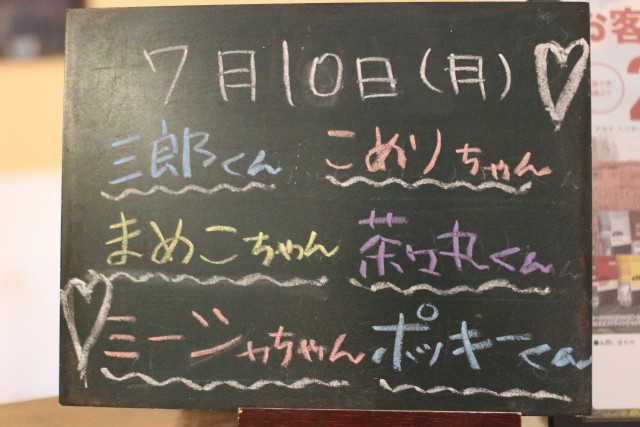 7月10日(月)
三郎くん こめりちゃん
まめこちゃん 茶々丸くん
ミージャちゃん ポッキーくん
お客
2
●お問い合わせ